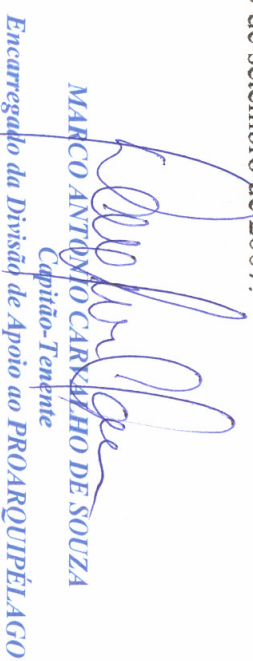 de setembro de 2007.
MARCO ANTONIO CARVALHO DE SOUZA
Capitão-Tenente
Encarregado da Divisão de Apoio ao PROARQUIPÉLAGO